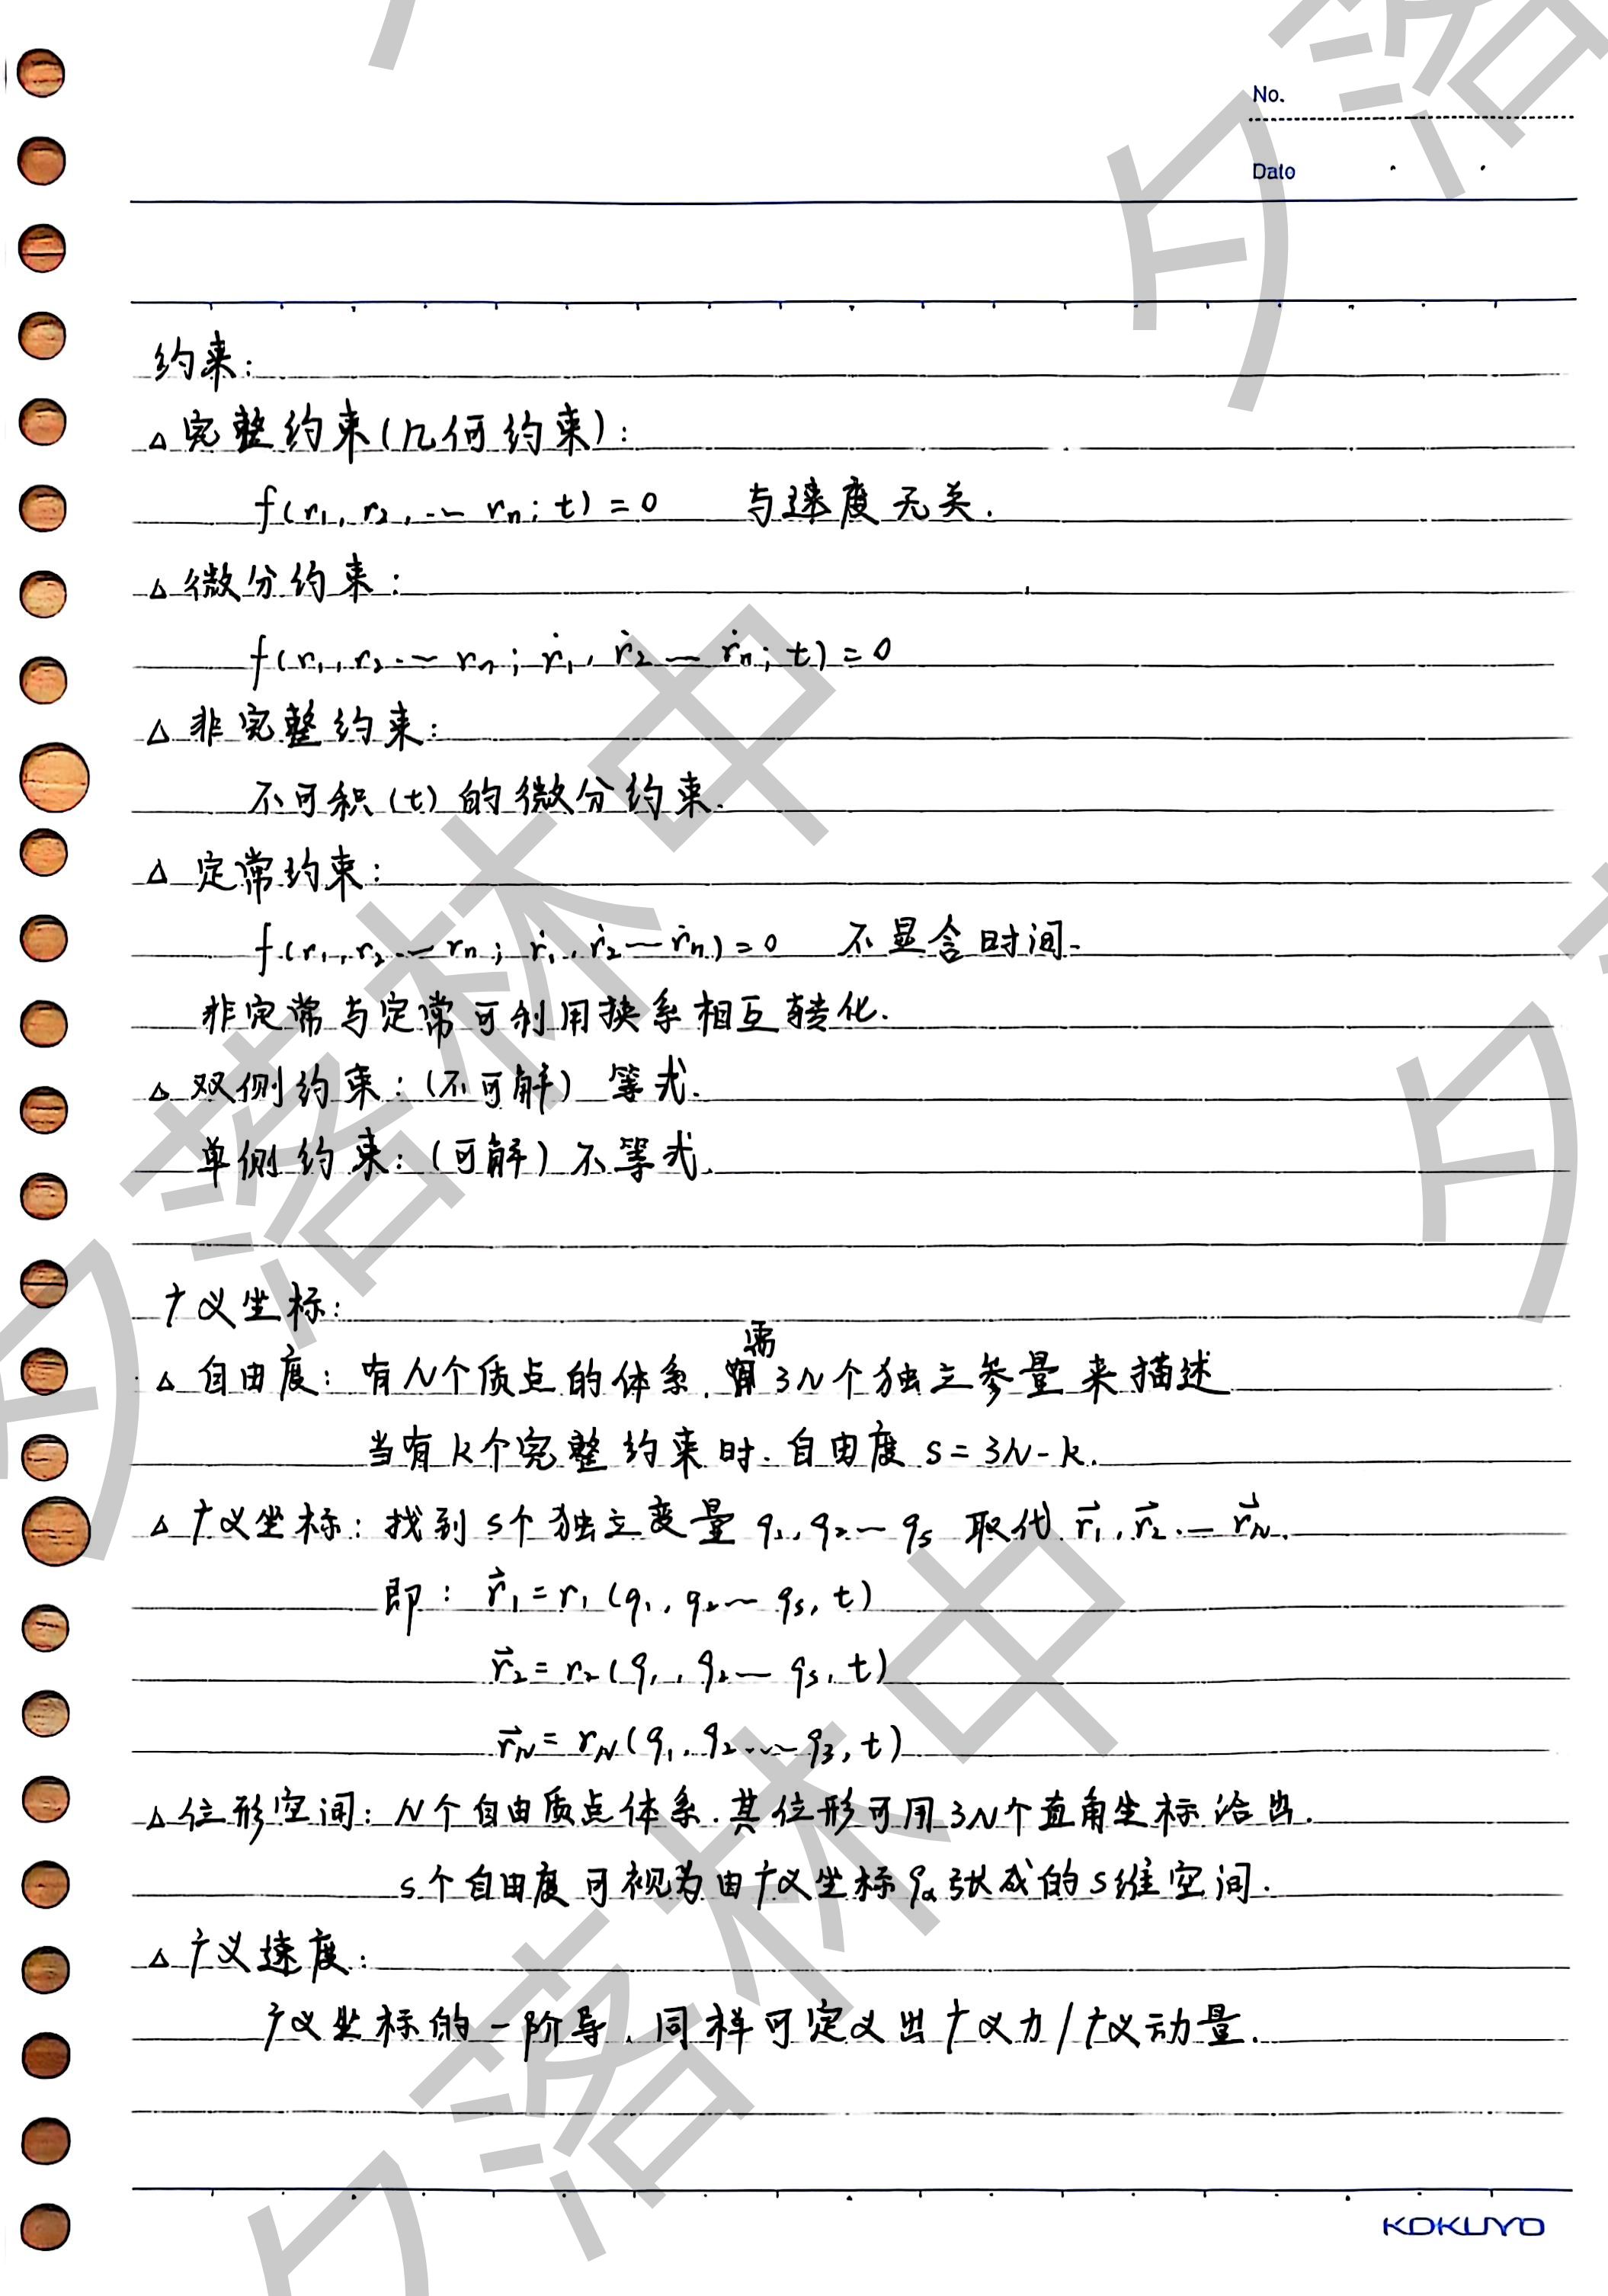 No.
Date
约束:
△ 完整约束(几何约束):
f(r₁, r₂, … rₙ; t) = 0 与速度无关.
△ 微分约束:
f(r₁, r₂ … rₙ; ṙ₁, ṙ₂ … ṙₙ; t) = 0
△ 非完整约束:
不可积(t)的微分约束.
△ 定常约束:
f(r₁, r₂ … rₙ; ṙ₁, ṙ₂ … ṙₙ) = 0 不显含时间.
非定常与定常可利用换系相互转化.
△ 双侧约束: (不可解) 等式.
单侧约束: (可解) 不等式.
广义坐标:
△ 自由度: 有N个质点的体系, 需3N个独立参量来描述
当有k个完整约束时. 自由度 s = 3N - k.
△ 广义坐标: 找到s个独立变量 q₁, q₂ … qs 取代 r⃗₁, r⃗₂, … r⃗N.
即: r⃗₁ = r₁ (q₁, q₂ … qs, t)
r⃗₂ = r₂ (q₁, q₂ … qs, t)
r⃗N = rN (q₁, q₂ … q₃, t)
△ 位形空间: N个自由质点体系. 其位形可用3N个直角坐标给出.
s个自由度可视为由广义坐标qα张成的s维空间.
△ 广义速度:
广义坐标的一阶导, 同样可定义出广义力/广义动量.
KOKUYO
夕落林中
夕落林中
夕落
夕